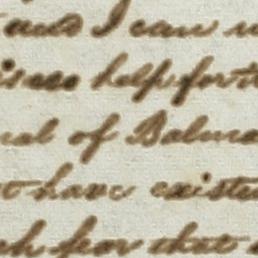 and I can
is no help for it
al of Balma
t have existe
ch fear that